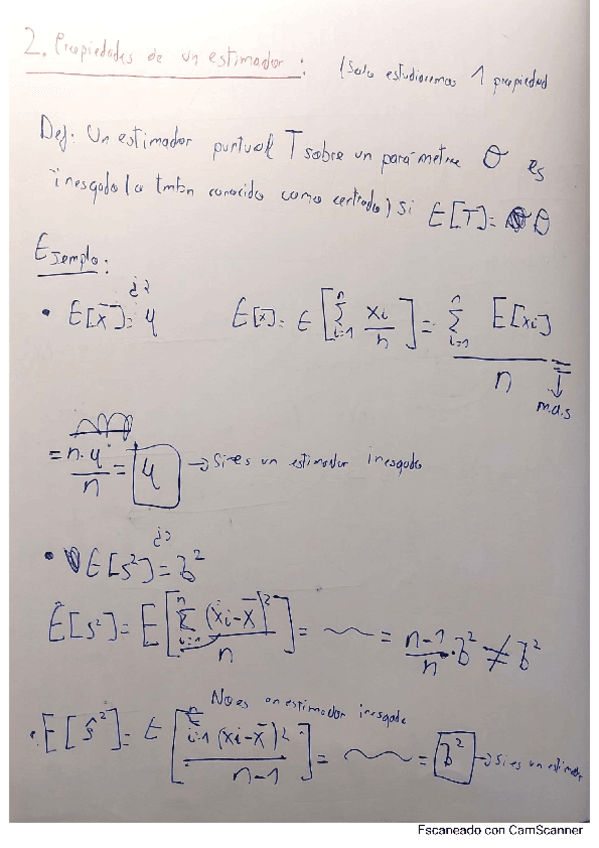 2. Propiedades de un estimador: (Solo estudiaremos 1 propiedad
Def: Un estimador puntual T sobre un parámetro θ es
insesgado (o tmbn conocido como centrado) si E[T] = θ
Ejemplo:
• E[x̄] = μ ¿? E[x̄] = E[∑ᵢ₌₁ⁿ xi/n] = ∑ᵢ₌₁ⁿ E[xi] / n =
m.a.s
= n·μ/n = μ → Si es un estimador insesgado
• E[s²] = σ² ¿?
E[s²] = E[∑ᵢ₌₁ⁿ (xi-x̄)²/n] = ~~ = n-1/n · σ² ≠ σ²
No es un estimador insesgado
• E[ŝ²] = E[∑ᵢ₌₁ⁿ (xi-x̄)²/n-1] = ~~ = σ² → Si es un estimador
Escaneado con CamScanner